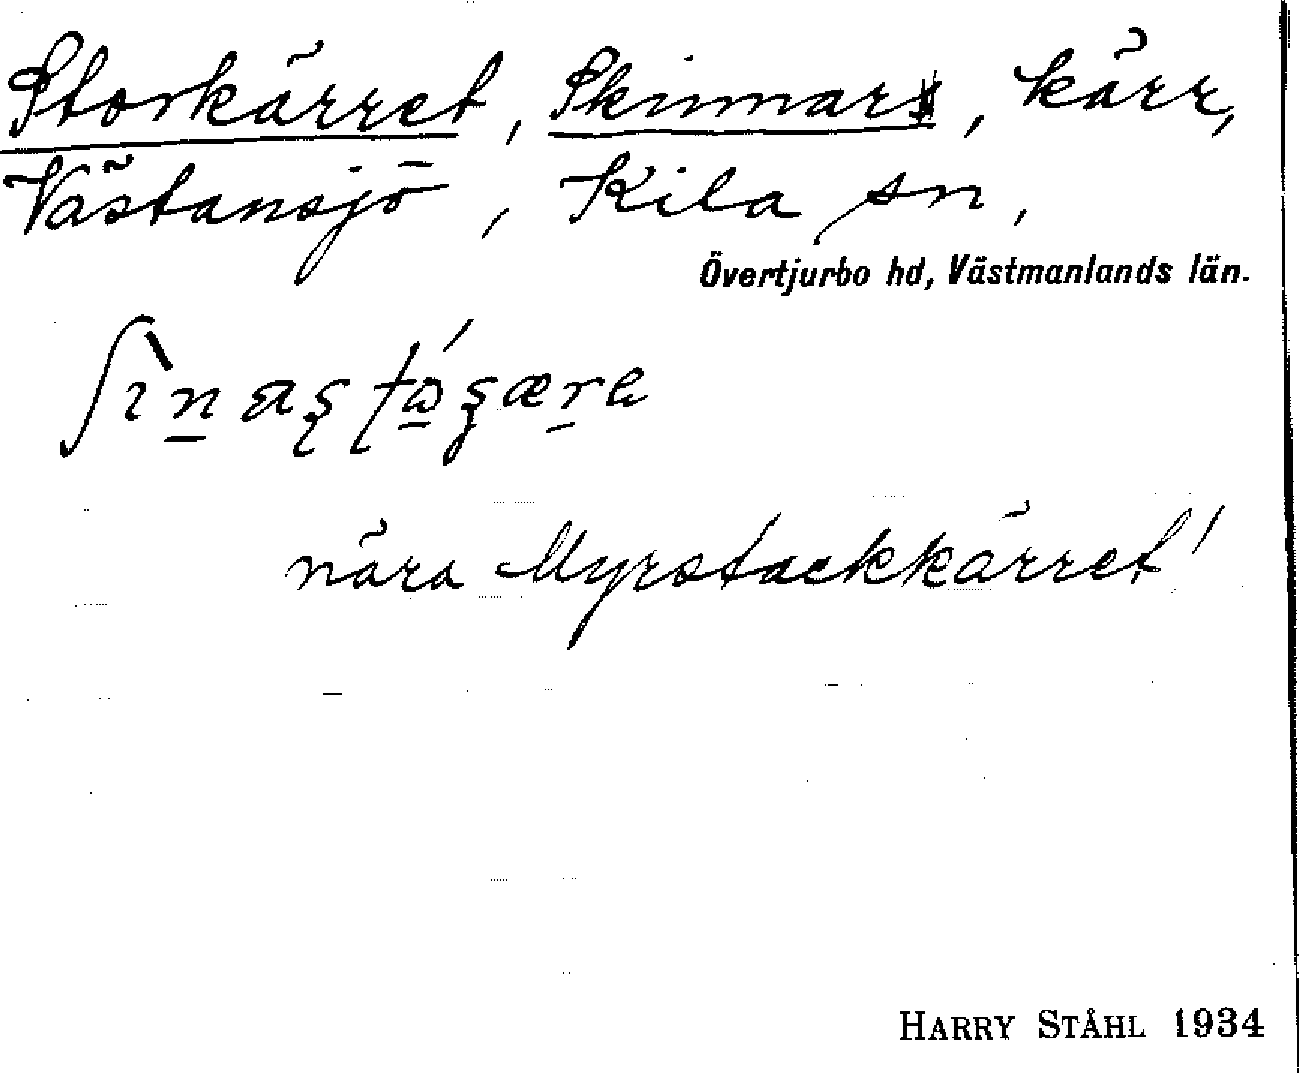 Storkärret, Skinnar, kärr,
Västansjö, Kila sn,
Övertjurbo hd, Västmanlands län.
nära Myrstackkärret!
HARRY STÅHL 1934